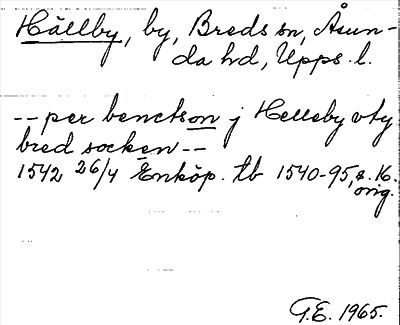 Hällby, by, Breds sn, Åsun-
da hd, Upps. l.
-- per benctson j Helleby vty
bred socken --
1542 26/4 Enköp. tb 1540-95, s. 16.
orig.
G.E. 1965.